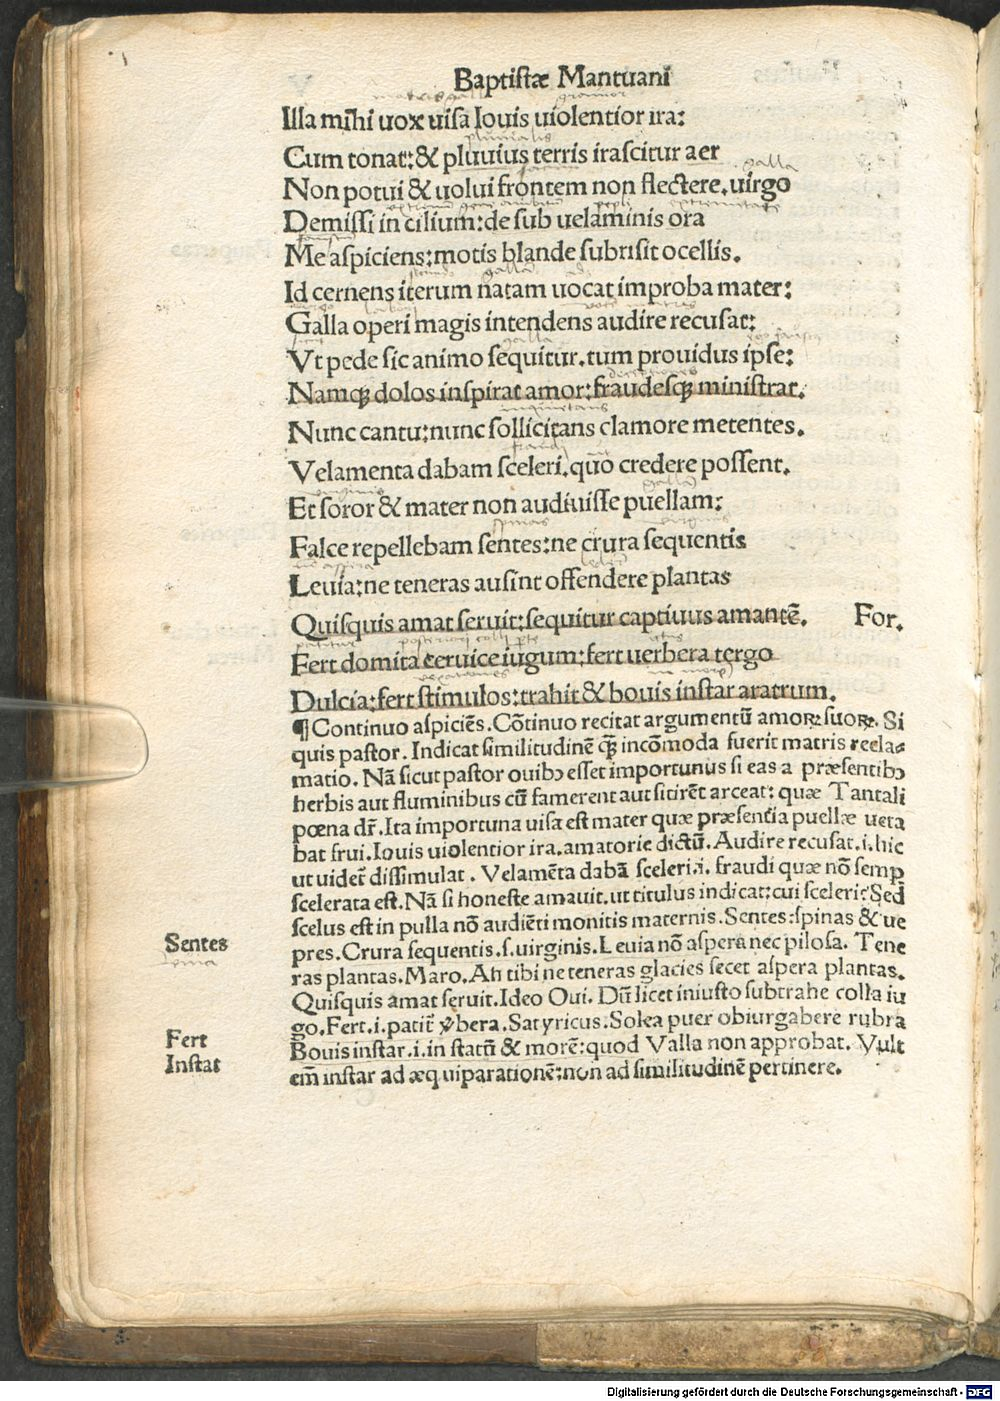 Baptistæ Mantuani
Illa mihi uox uisa Iouis uiolentior ira:
Cum tonat: & pluuius terris irascitur aer
galla
Non potui & uolui frontem non flectere. uirgo
Demissi in cilium: de sub uelaminis ora
Me aspiciens: motis blande subrisit ocellis.
Id cernens iterum natam uocat improba mater:
Galla operi magis intendens audire recusat:
galla
Vt pede sic animo sequitur. tum prouidus ipse:
Namqꝫ dolos inspirat amor: fraudesqꝫ ministrat.
Nunc cantu: nunc sollicitans clamore metentes.
Velamenta dabam sceleri. quo credere possent.
Et soror & mater non audiuisse puellam:
spinas
Falce repellebam sentes: ne crura sequentis
Leuia: ne teneras ausint offendere plantas
Quisquis amat seruit: sequitur captiuus amantē. For.
Fert domita ceruice iugum: fert uerbera tergo
Dulcia: fert stimulos: trahit & bouis instar aratrum.
¶ Continuo aspiciēs. Cōtinuo recitat argumentū amoꝝ suoꝝ. Si
quis pastor. Indicat similitudinē qꝫ incōmoda fuerit matris recla-
matio. Nā sicut pastor ouibꝰ esset importunus si eas a præsentibꝰ
herbis aut fluminibus cū famerent aut sitirēt arceat: quæ Tantali
pœna dr̄. Ita importuna uisa est mater quæ præsentia puellæ ueta
bat frui. Iouis uiolentior ira. amatorie dictū. Audire recusat. i. hic
ut uidet̄ dissimulat. Velamēta dabā sceleri. i. fraudi quæ nō semp̄
scelerata est. Nā si honeste amauit. ut titulus indicat: cui sceleri? Sed
scelus est in pulla nō audiēti monitis maternis. Sentes: spinas & ue
Sentes
pres. Crura sequentis. s. uirginis. Leuia nō aspera nec pilosa. Tene
ras plantas. Maro. Ah tibi ne teneras glacies secet aspera plantas.
Quisquis amat seruit. Ideo Oui. Dū licet iniusto subtrahe colla iu
go. Fert. i. patit̄ v̄bera. Satyricus: Solea puer obiurgabere rubra
Fert
Bouis instar. i. in statū & morē: quod Valla non approbat. Vult
Instat
em̄ instar ad æquiparationē: non ad similitudinē pertinere.
Digitalisierung gefördert durch die Deutsche Forschungsgemeinschaft - DFG